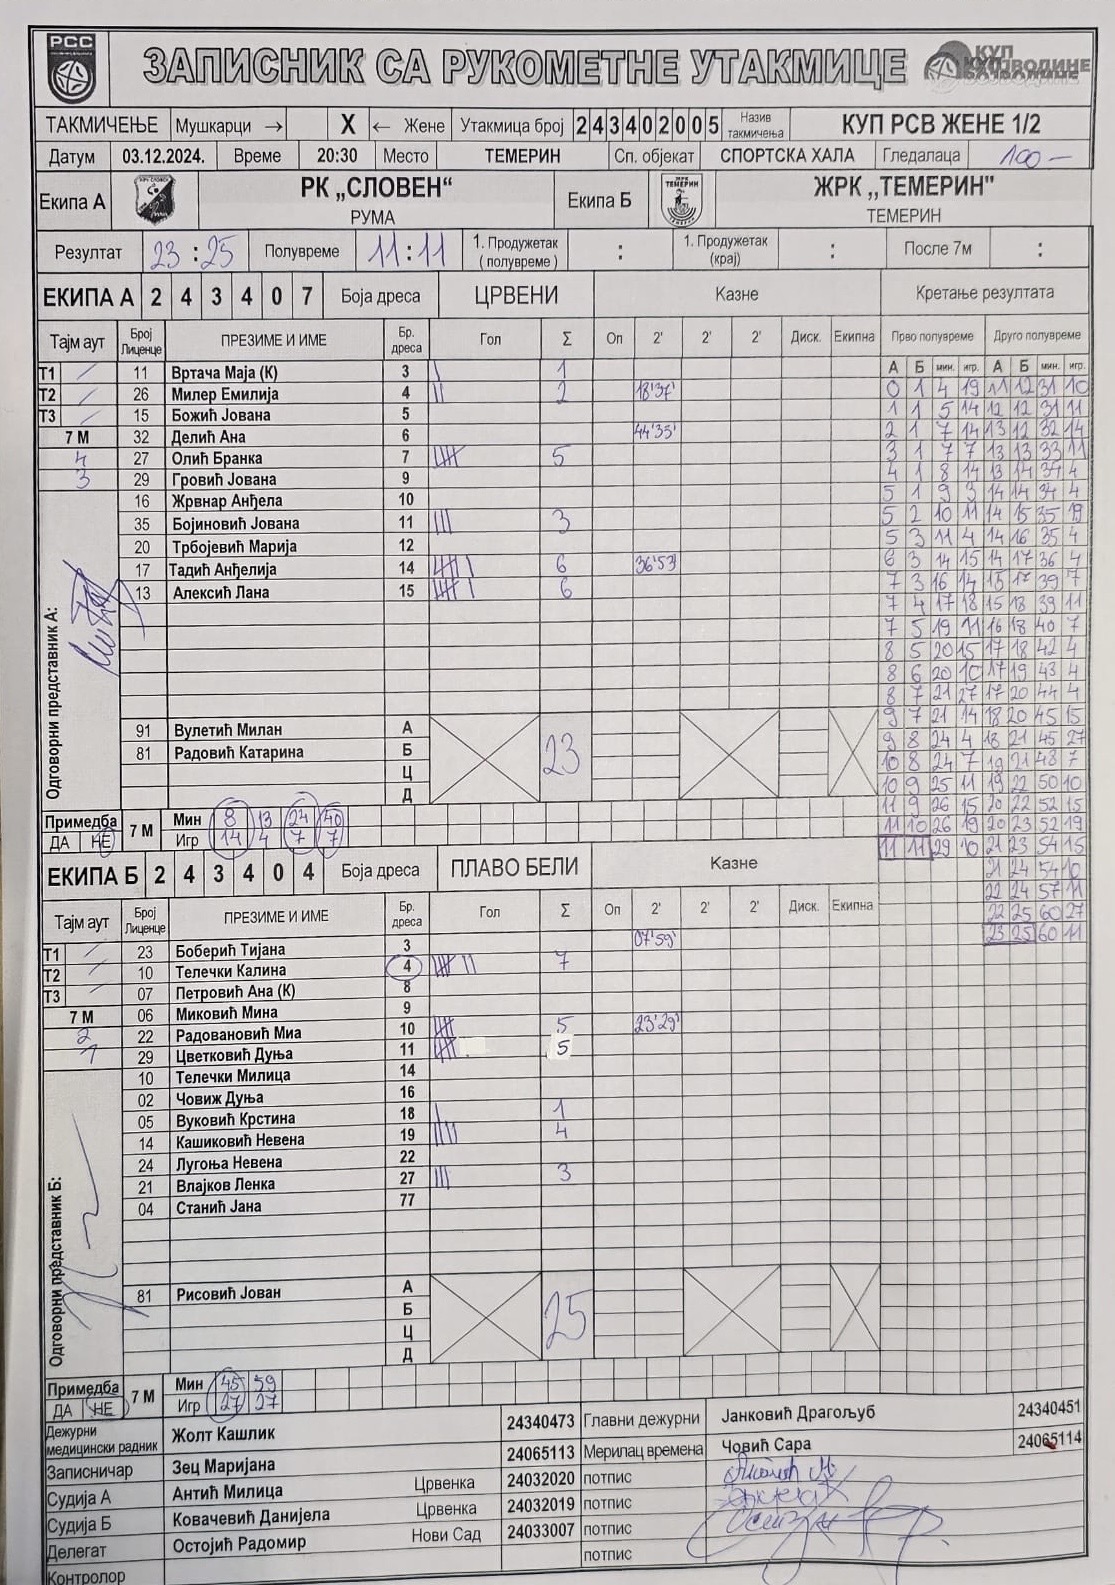 РСС
ЗАПИСНИК СА РУКОМЕТНЕ УТАКМИЦЕ
КУП
ВОЈВОДИНЕ
ТАКМИЧЕЊЕ Мушкарци → X ← Жене Утакмица број 243402005 Назив такмичења КУП РСВ ЖЕНЕ 1/2
Датум 03.12.2024. Време 20:30 Место ТЕМЕРИН Сп. објекат СПОРТСКА ХАЛА Гледалаца 100-
Екипа А РК „СЛОВЕН“ РУМА Екипа Б ЖРК „ТЕМЕРИН" ТЕМЕРИН
Резултат 23 : 25 Полувреме 11:11 1. Продужетак (полувреме) : 1. Продужетак (крај) : После 7м :
ЕКИПА А 2 4 3 4 0 7 Боја дреса ЦРВЕНИ Казне Кретање резултата
Тајм аут Број Лиценце ПРЕЗИМЕ И ИМЕ Бр. дреса Гол Σ Оп 2' 2' 2' Диск. Екипна Прво полувреме Друго полувреме
А Б мин. игр. А Б мин. игр.
Т1 11 Вртача Маја (К) 3 1
Т2 26 Милер Емилија 4 2 18'37'
Т3 15 Божић Јована 5
7 М 32 Делић Ана 6 44'35'
4 27 Олић Бранка 7 5
3 29 Гровић Јована 9
16 Жрвнар Анђела 10
35 Бојиновић Јована 11 3
20 Трбојевић Марија 12
17 Тадић Анђелија 14 6 36'53'
13 Алексић Лана 15 6
Одговорни представник А:
91 Вулетић Милан А
81 Радовић Катарина Б
Ц
Д
23
0 1 4 19 11 12 31 10
1 1 5 14 12 12 31 11
2 1 7 14 13 12 32 14
3 1 7 7 13 13 33 11
4 1 8 14 13 14 34 4
5 1 9 3 14 14 34 4
5 2 10 11 14 15 35 19
5 3 11 4 14 16 35 4
6 3 14 15 14 17 36 4
7 3 16 14 15 17 39 7
7 4 17 18 15 18 39 11
7 5 19 11 16 18 40 7
8 5 20 15 17 18 42 4
8 6 20 10 17 19 43 4
8 7 21 27 17 20 44 4
9 7 21 14 18 20 45 15
9 8 24 4 18 21 45 27
10 8 24 7 19 21 48 7
10 9 25 11 19 22 50 10
11 9 26 15 20 22 52 15
11 10 26 19 20 23 52 19
11 11 29 10 21 23 54 15
21 24 54 10
22 24 57 11
22 25 60 27
23 25 60 11
Примедба ДА НЕ 7 М Мин 8 13 24 40
Игр 14 4 7 7
ЕКИПА Б 2 4 3 4 0 4 Боја дреса ПЛАВО БЕЛИ Казне
Тајм аут Број Лиценце ПРЕЗИМЕ И ИМЕ Бр. дреса Гол Σ Оп 2' 2' 2' Диск. Екипна
Т1 23 Боберић Тијана 3 07'59'
Т2 10 Телечки Калина 4 7
Т3 07 Петровић Ана (К) 8
7 М 06 Миковић Мина 9
2 22 Радовановић Миа 10 5 23'29'
1 29 Цветковић Дуња 11 5
10 Телечки Милица 14
02 Човиж Дуња 16
05 Вуковић Крстина 18 1
14 Кашиковић Невена 19 4
24 Лугоња Невена 22
21 Влајков Ленка 27 3
04 Станић Јана 77
Одговорни представник Б:
81 Рисовић Јован А
Б
Ц
Д
25
Примедба ДА НЕ 7 М Мин 45 59
Игр 27 27
Дежурни медицински радник Жолт Кашлик 24340473 Главни дежурни Јанковић Драгољуб 24340451
Записничар Зец Маријана 24065113 Мерилац времена Човић Сара 24065114
Судија А Антић Милица Црвенка 24032020 потпис
Судија Б Ковачевић Данијела Црвенка 24032019 потпис
Делегат Остојић Радомир Нови Сад 24033007 потпис
Контролор потпис